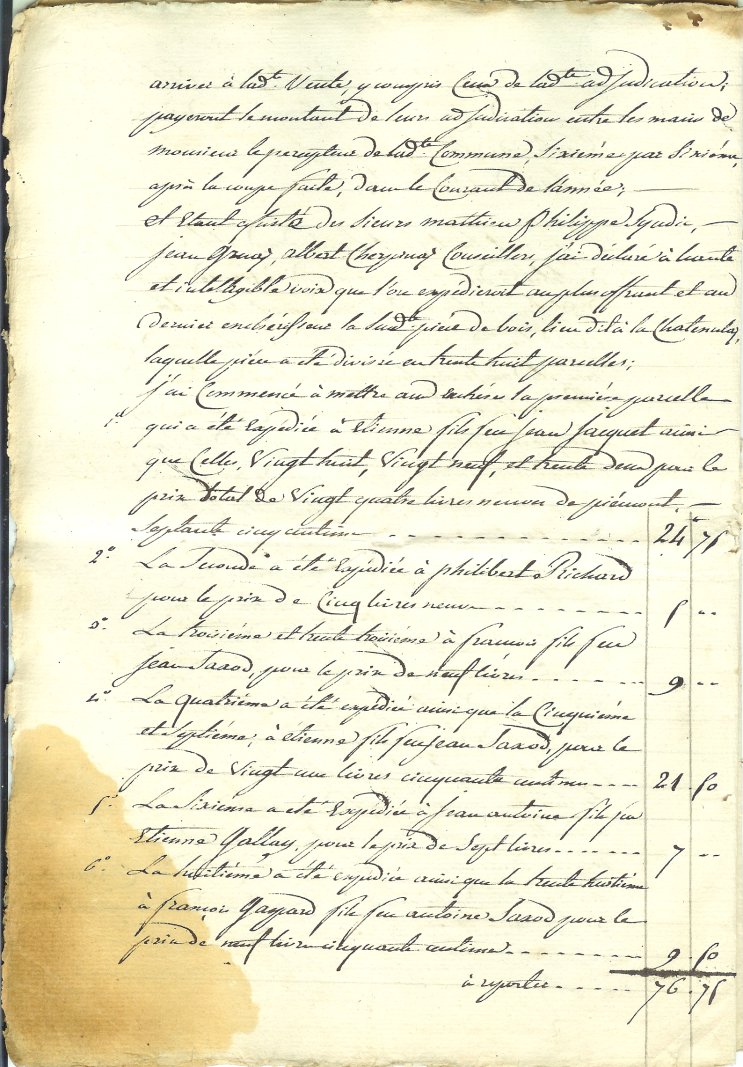 arriver à lad.te Vente, y compris Ceux de lad.te adjudication;
payeront le montant de leurs adjudication entre les mains de
monsieur le percepteur de lad.te Commune, Sixiéme par Sixiéme,
après la coupe faite, dans le Courant de l'année; —
et Etant assisté des Sieurs mathieu Philippe Syndic, —
jean albert Conseillers, j'ai déclaré à haute
et intelligible voix que l'on expédieroit au plus offrant et au
dernier enchérisseur la Sud.te pièce de bois, lieu dit à la Chatenulaz,
laquelle pièce a été divisée en trente huit parcelles;
j'ai Commencé à mettre aux enchéres la première parcelle
1° qui a été Expédiée à Etienne fils feu jean Jacquet ainsi
que Celles, Vingt huit, Vingt neuf, et trente deux pour le
prix total de Vingt quatre livres neuves de piémont, —
Septante cinq centimes - - - - - - 24 75
2° La Seconde a été Expédiée à philibert Richard
pour le prix de Cinq livres neuves - - - - - - 5 --
3° La troisiéme et trente troisiéme à françois fils feu
jean Saxod, pour le prix de neuf livres - - - - - - 9 --
4° La quatriéme a été expédiée ainsi que la Cinquiéme
et Septiéme, à étienne fils feu jean Saxod, pour le
prix de Vingt une livres cinquante centimes - - - - 21 50
5° La Sixieme a été Expédiée à jean antoine fils feu
Etienne Gallay, pour le prix de Sept livres - - - - - - 7 --
6° La huitiéme a été expédiée ainsi que la trente huitiéme
à françois Gaspard fils feu antoine Saxod pour le
prix de neuf livres cinquante centimes - - - - - - 9 50
à reporter - - - - - 76 75